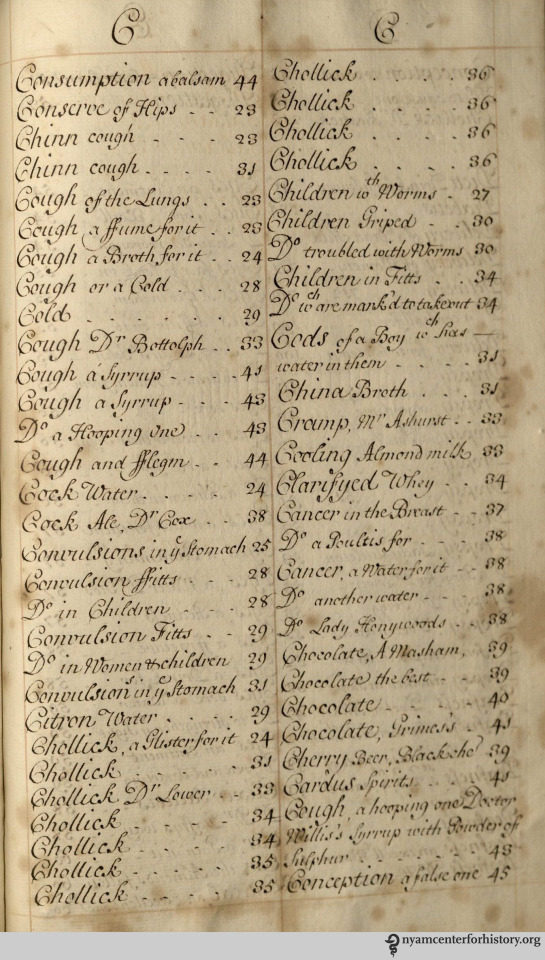 C
Consumption a balsam 44
Conserve of Hips . . 23
Chinn cough - - - 23
Chinn cough . . . . 31
Cough of the Lungs . . 23
Cough a ffume for it . . 23
Cough a Broth for it . . 24
Cough or a Cold . . . 28
Cold . . . . . . 29
Cough Dr Bottolph . . 33
Cough a Syrrup - - - - 41
Cough a Syrrup - - - 43
Do a Hooping one . . 43
Cough and fflegm . . 44
Cock Water . . . . 24
Cock Ale, Dr Cox . . 38
Convulsions in ye Stomach 25
Convulsion ffitts . . . 28
Do in Children . . . 28
Convulsion Fitts . . 29
Do in Women & children 29
Convulsions in ye Stomach 31
Citron Water . . . . 29
Chollick, a Glister for it 24
Chollick . . . . . 31
Chollick Dr Lower . . 33
Chollick . . . . . 34
Chollick . . . . . 34
Chollick - - - - - 35
Chollick . . . . . 35
C
Chollick . . . . 36
Chollick . . . . 36
Chollick . . . . 36
Chollick . . . . 36
Children wth Worms . 27
Children Griped - . 30
Do troubled with Worms 30
Children in Fitts . . 34
Do wch are mark'd to take out 34
Cods of a Boy wch has —
water in them . . . 31
China Broth . . . 31
Cramp, Mr Ashurst . . 33
Cooling Almond milk 33
Clarifyed Whey . . 34
Cancer in the Breast . . 37
Do a Poultis for . . . 38
Cancer, a Water for it . . 38
Do another water . . . 38
Do Lady Honywoods . . 38
Chocolate, A Masham, 39
Chocolate the best . . 39
Chocolate . . . . 40
Chocolate, Grimes's . 41
Cherry Beer, Black che 39
Cardus Spirits . . . 41
Cough, a hooping one Doctor
Willis's Syrrup with Powder of
Sulphur . . . . . . 43
Conception a false one 45
nyamcenterforhistory.org